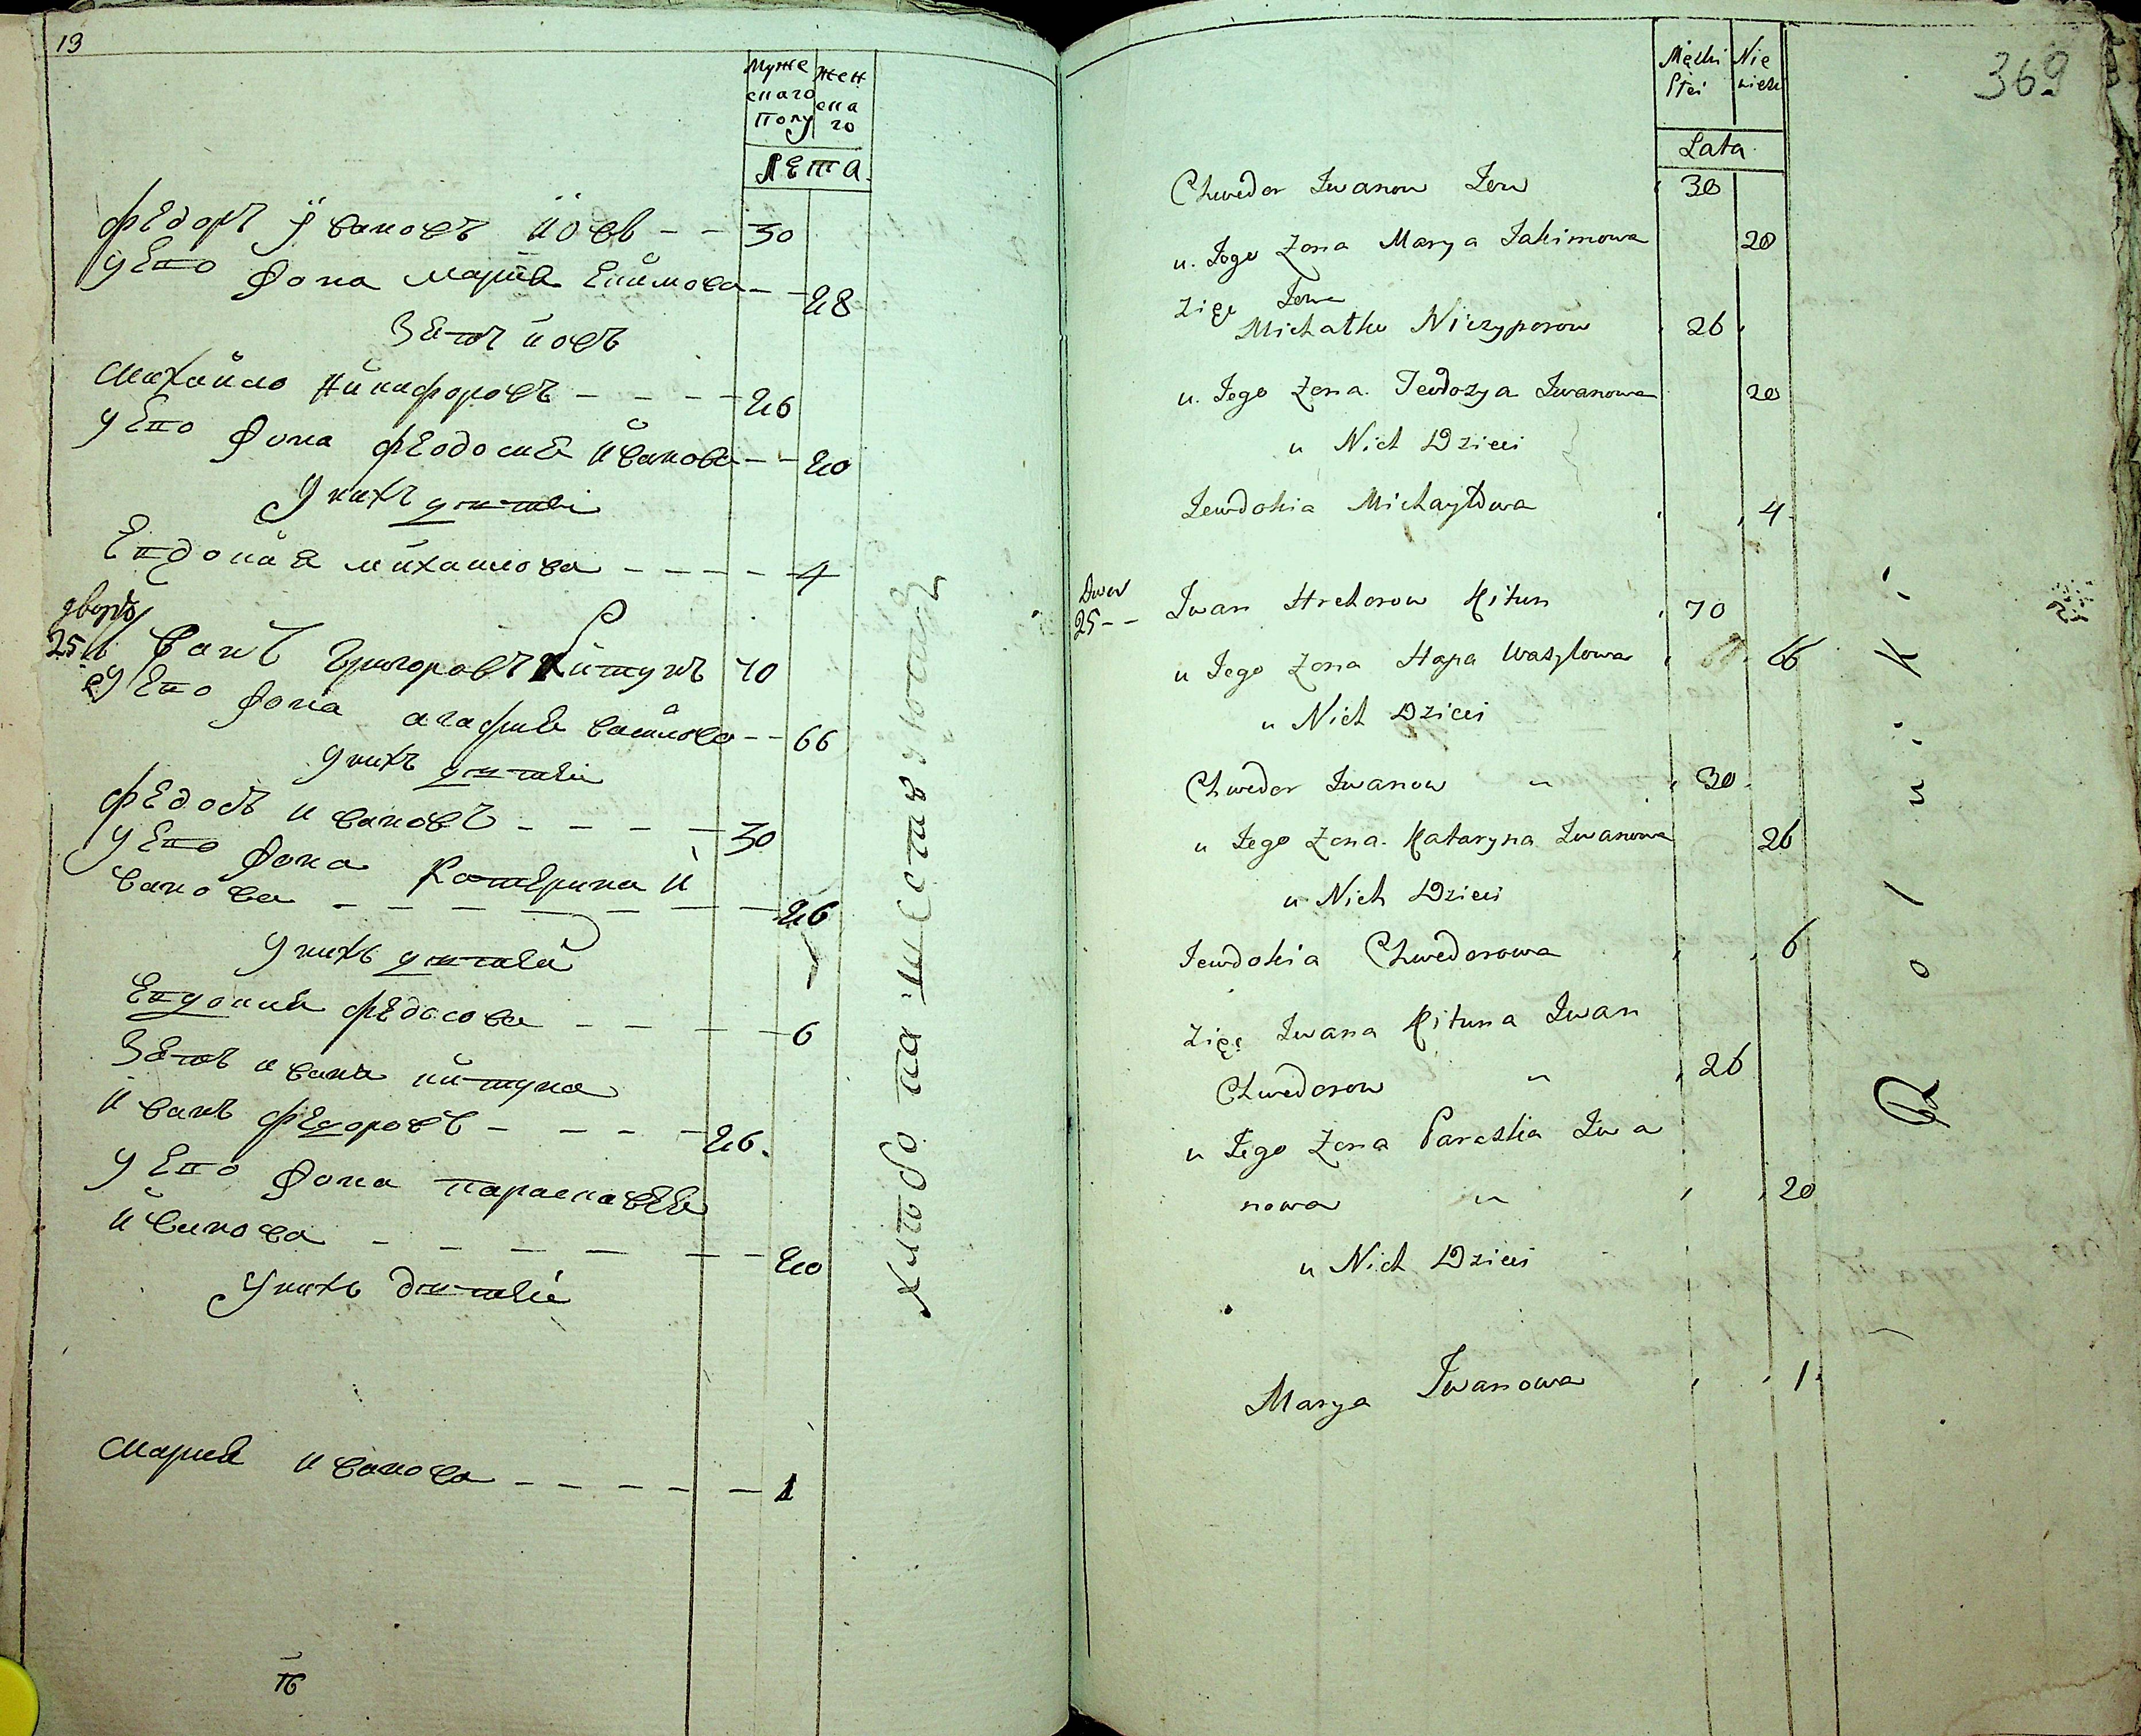 13
Муже
скаго
полу
Жен
ска
го
Лета
Федоръ Ивановъ Іовъ - - 30
У его жона Марія Екимова - - 28
Зять Іовъ
Михаило Никифоровъ - - - - 26
У его жона Феодосия Иванова - - 20
У нихъ дети
Евдокия Михаилова - - - - 4
дворъ
25 Иванъ Григоровъ Китунъ 70
У его жона Агафия Василова - - 66
У нихъ дети
Федоръ Ивановъ - - - - 30
У его жона Катерина И
ванова - - - - - - 26
У нихъ дети
Евдокия Федорова - - - - 6
Зять Ивана Китуна
Иванъ Федоровъ - - - - 26.
У его жона Парасковея
Иванова - - - - - - 20
У нихъ дети
Мария Иванова - - - - - 1
369
Męski
Płci
Nie
wieści
Lata
Chwedor Iwanow Iow 30
u. Jego Zona Marya Jakimowa 28
Zięć Iowa
Michałko Niczyporow 26
u. Jego Zona Teodozya Iwanowa 20
u Nich Dzieci
Jewdokia Michayłowa 4
Dwor
25 - - Iwan Hrehorow Kitun 70
u Jego Zona Hapa Wasylowa 66
u Nich Dzieci
Chwedor Iwanow 30
u Jego Zona Kataryna Iwanowa 26
u Nich Dzieci
Jewdokia Chwedorowa 6
Zięć Iwana Kituna Iwan
Chwedorow 26
u Jego Zona Paraska Iwa
nowa 20
u Nich Dzieci
Marya Iwanowa 1